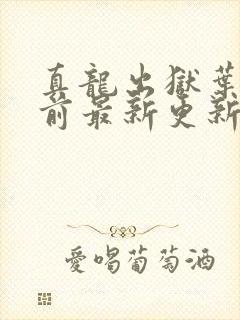 真龍出獄葉
前最新更新
愛喝葡萄酒